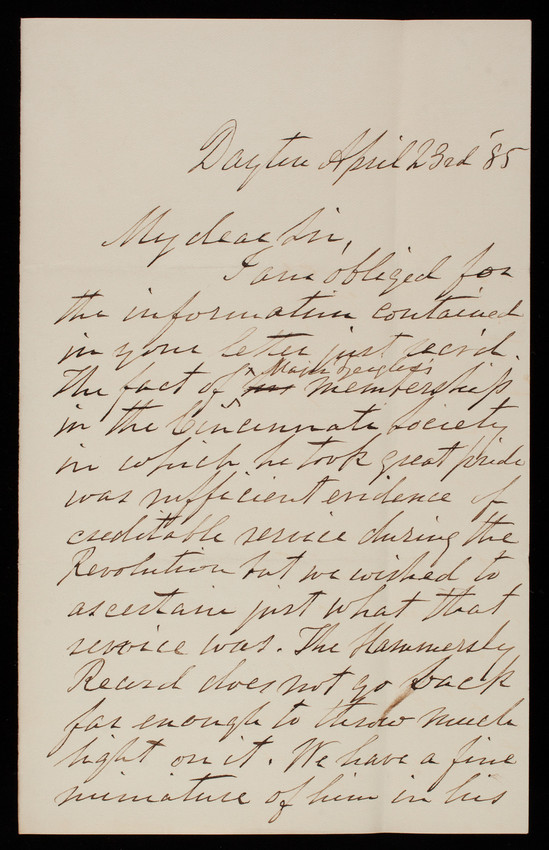 Dayton April 23rd '85
My dear Sir,
I am obliged for
the information contained
in your letter just recd.
Major Zeigler's
The fact of his membership
in the Cincinnati Society
in which he took great pride
was sufficient evidence of
creditable service during the
Revolution but we wished to
ascertain just what that
service was. The Hammersly
Record does not go back
far enough to throw much
light on it. We have a fine
miniature of him in his